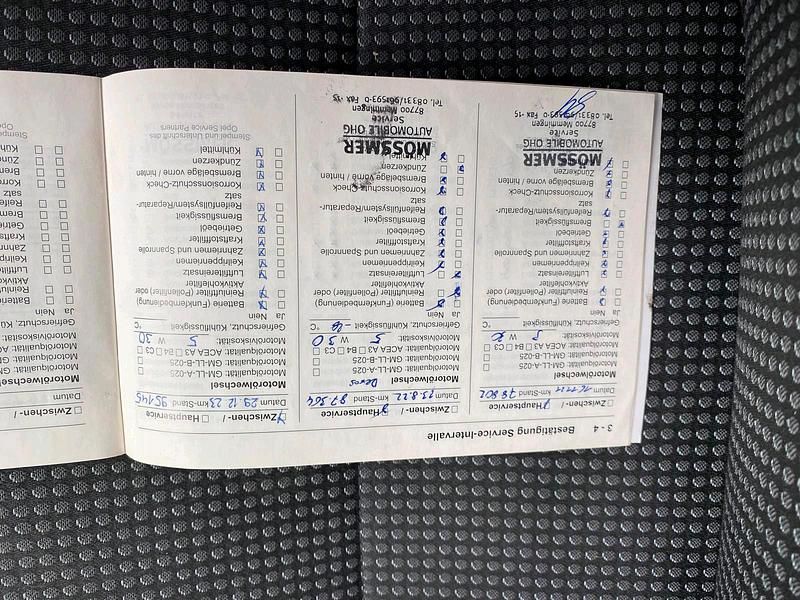 3 - 4 Bestätigung Service-Intervalle
Zwischen- / Hauptservice
Datum km-Stand 78802
Motorölwechsel
Motorölqualität: GM-LL-A-025
Motorölqualität: GM-LL-B-025
Motorölqualität: ACEA A3 B4 C3
Motorölviskosität: 5 W 30
Gefrierschutz, Kühlflüssigkeit °C
Ja Nein
Batterie (Funkfernbedienung)
Reinluftfilter (Pollenfilter) oder
Aktivkohlefilter
Luftfiltereinsatz
Keilrippenriemen
Zahnriemen und Spannrolle
Kraftstofffilter
Getriebeöl
Bremsflüssigkeit
Reifenfüllsystem/Reparatur-
satz
Korrosionsschutz-Check
Bremsbeläge vorne / hinten
Zündkerzen
MÖSSMER
AUTOMOBILE OHG
Service
87700 Memmingen
Tel. 08331/961593-0 Fax -15
Zwischen- / Hauptservice
Datum 13.8.22 km-Stand 87364
Motorölwechsel
Motorölqualität: GM-LL-A-025
Motorölqualität: GM-LL-B-025
Motorölqualität: ACEA A3 B4 C3
Motorölviskosität: 5 W 30
Gefrierschutz, Kühlflüssigkeit °C
Ja Nein
Batterie (Funkfernbedienung)
Reinluftfilter (Pollenfilter) oder
Aktivkohlefilter
Luftfiltereinsatz
Keilrippenriemen
Zahnriemen und Spannrolle
Kraftstofffilter
Getriebeöl
Bremsflüssigkeit
Reifenfüllsystem/Reparatur-
satz
Korrosionsschutz-Check
Bremsbeläge vorne / hinten
Zündkerzen
Kühlmittel
MÖSSMER
AUTOMOBILE OHG
Service
87700 Memmingen
Tel. 08331/961593-0 Fax -15
Zwischen- / Hauptservice
Datum 29.12.23 km-Stand 95145
Motorölwechsel
Motorölqualität: GM-LL-A-025
Motorölqualität: GM-LL-B-025
Motorölqualität: ACEA A3 B4 C3
Motorölviskosität: 5 W 30
Gefrierschutz, Kühlflüssigkeit °C
Ja Nein
Batterie (Funkfernbedienung)
Reinluftfilter (Pollenfilter) oder
Aktivkohlefilter
Luftfiltereinsatz
Keilrippenriemen
Zahnriemen und Spannrolle
Kraftstofffilter
Getriebeöl
Bremsflüssigkeit
Reifenfüllsystem/Reparatur-
satz
Korrosionsschutz-Check
Bremsbeläge vorne / hinten
Zündkerzen
Kühlmittel
Stempel und Unterschrift des
Opel Service Partners
Zwischen- /
Datum
Motorölwechsel
Motorölqualität: GM
Motorölqualität: GM
Motorölqualität: AC
Motorölviskosität:
Gefrierschutz, Kü
Ja Nein
Batterie
Reinluft
Aktivko
Luftfilt
Keilrip
Zahnri
Krafts
Getrie
Brem
Reife
satz
Korro
Brem
Zünd
Kühl
Stemp
Opel